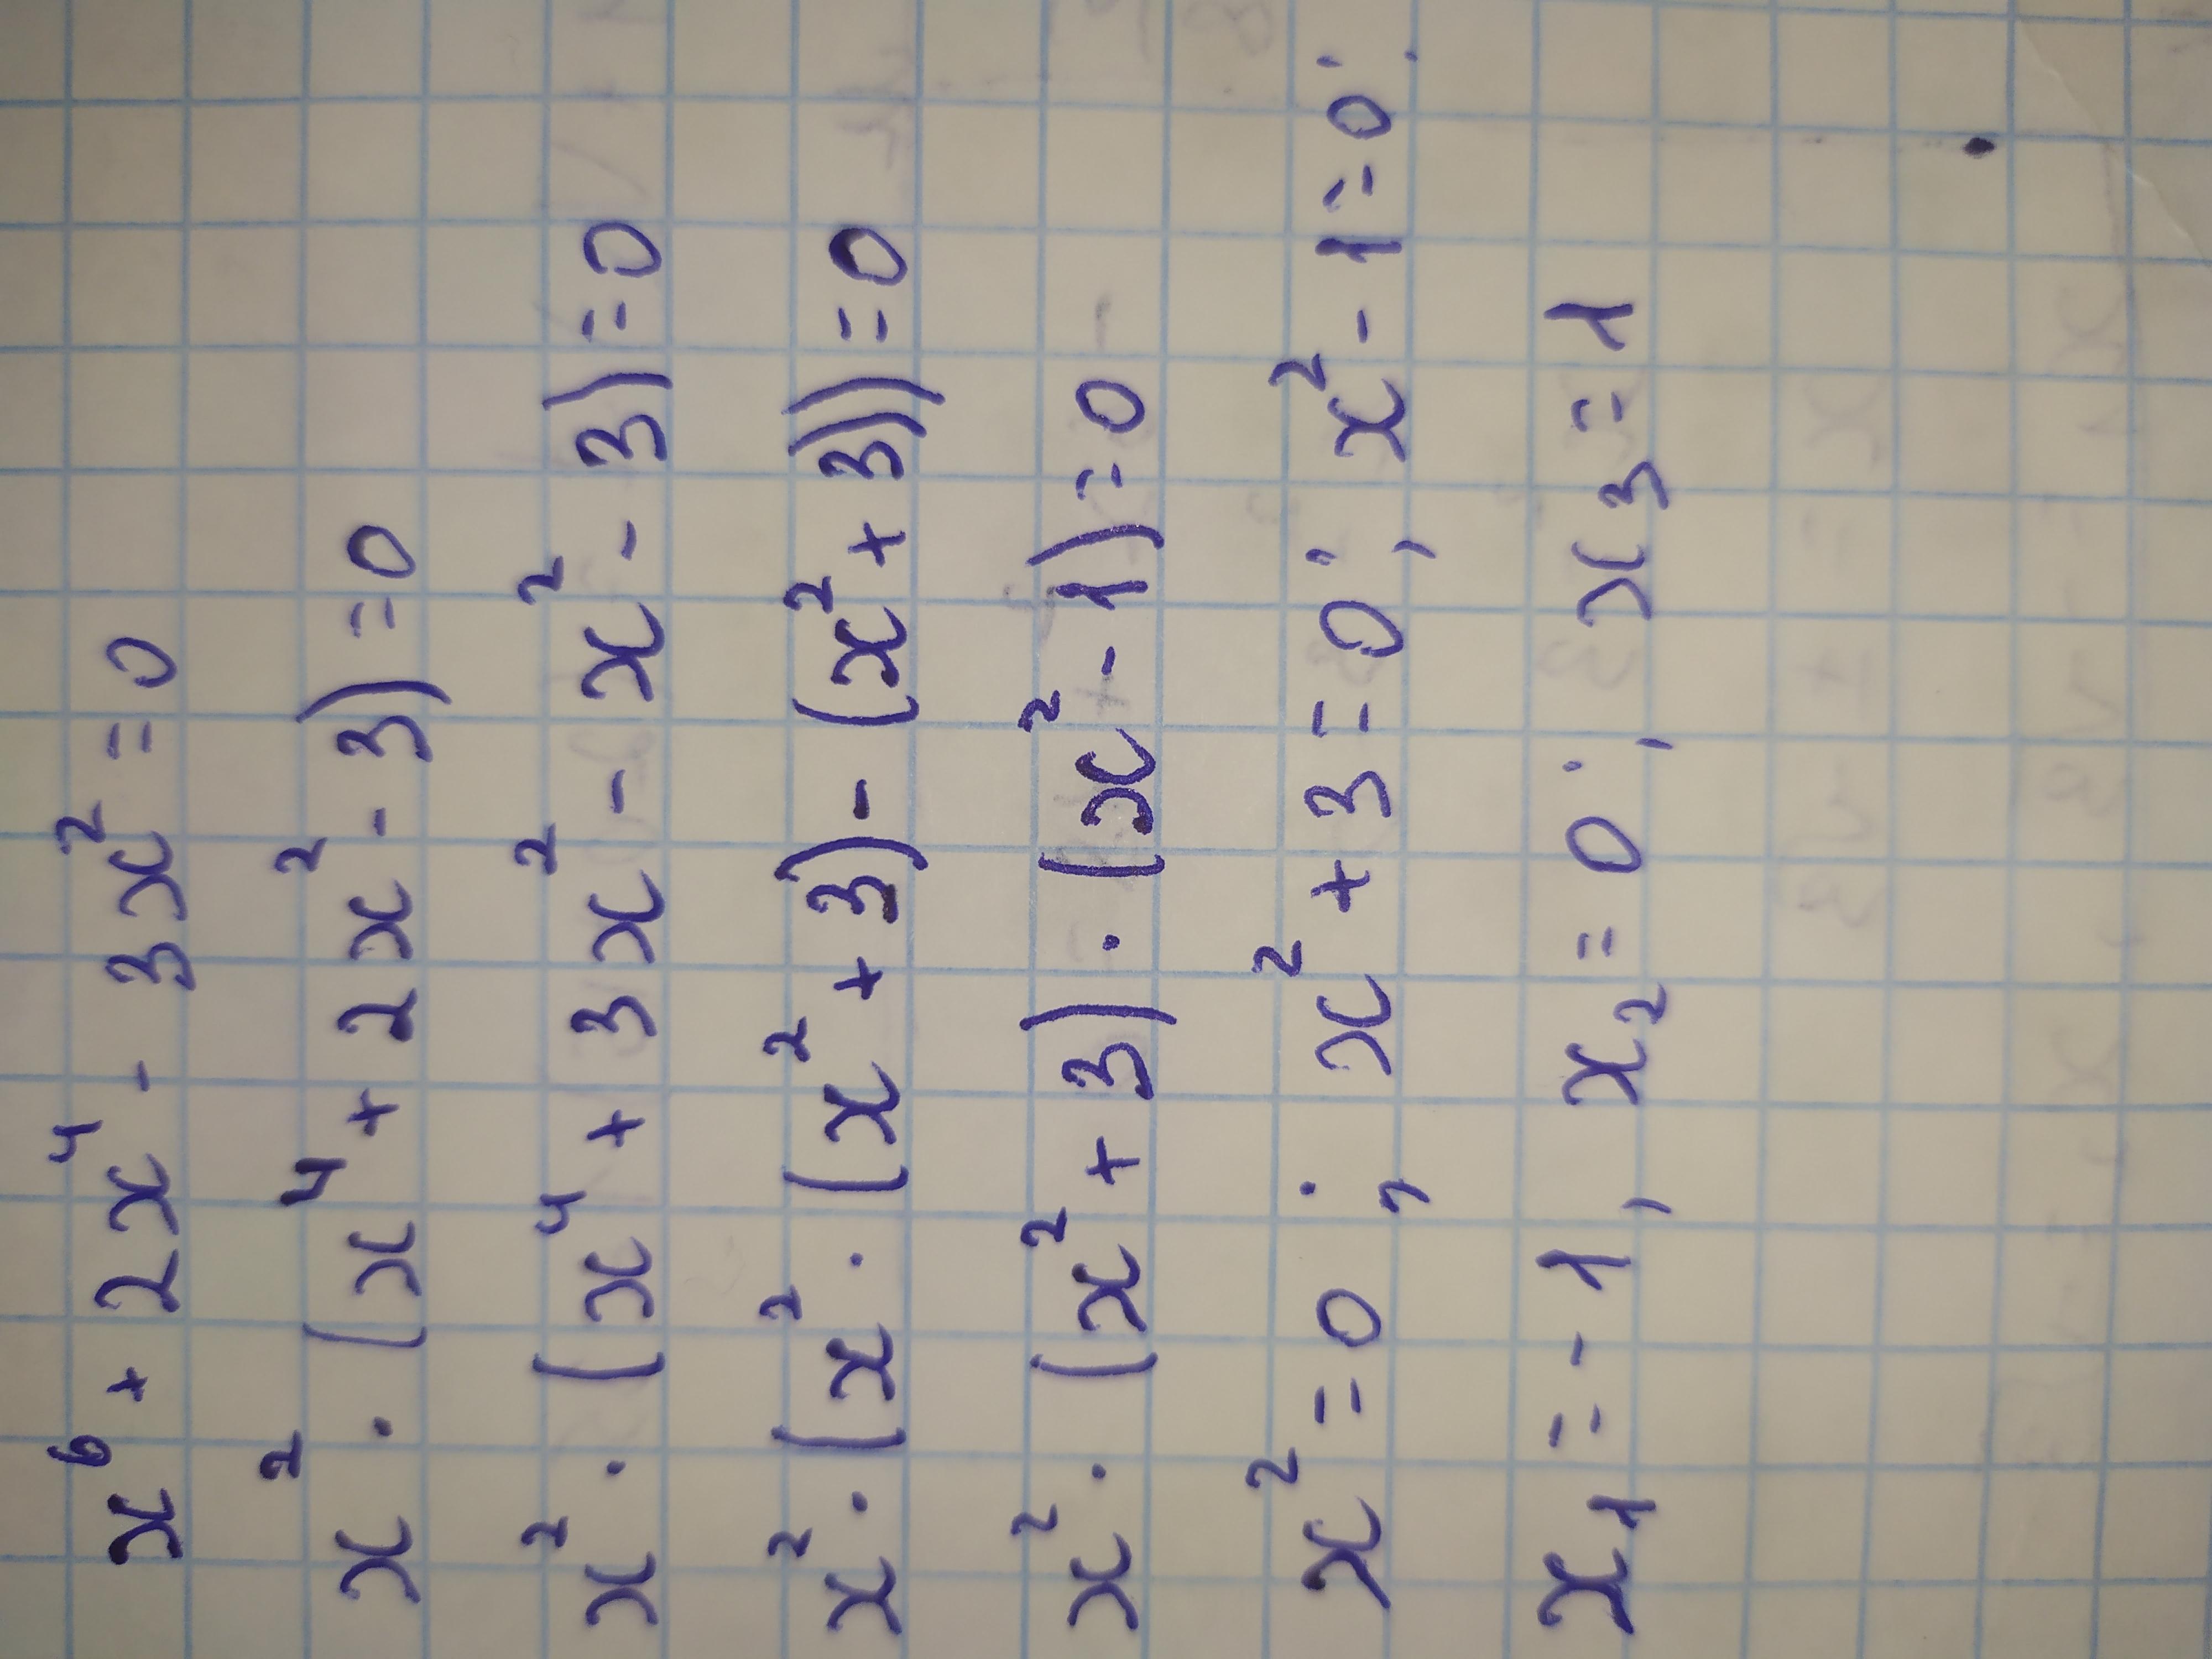 x⁶ + 2x⁴ - 3x² = 0
x² · (x⁴ + 2x² - 3) = 0
x² · (x⁴ + 3x² - x² - 3) = 0
x² · (x² · (x² + 3) - (x² + 3)) = 0
x² · (x² + 3) · (x² - 1) = 0
x² = 0; x² + 3 = 0; x² - 1 = 0;
x₁ = -1, x₂ = 0; x₃ = 1